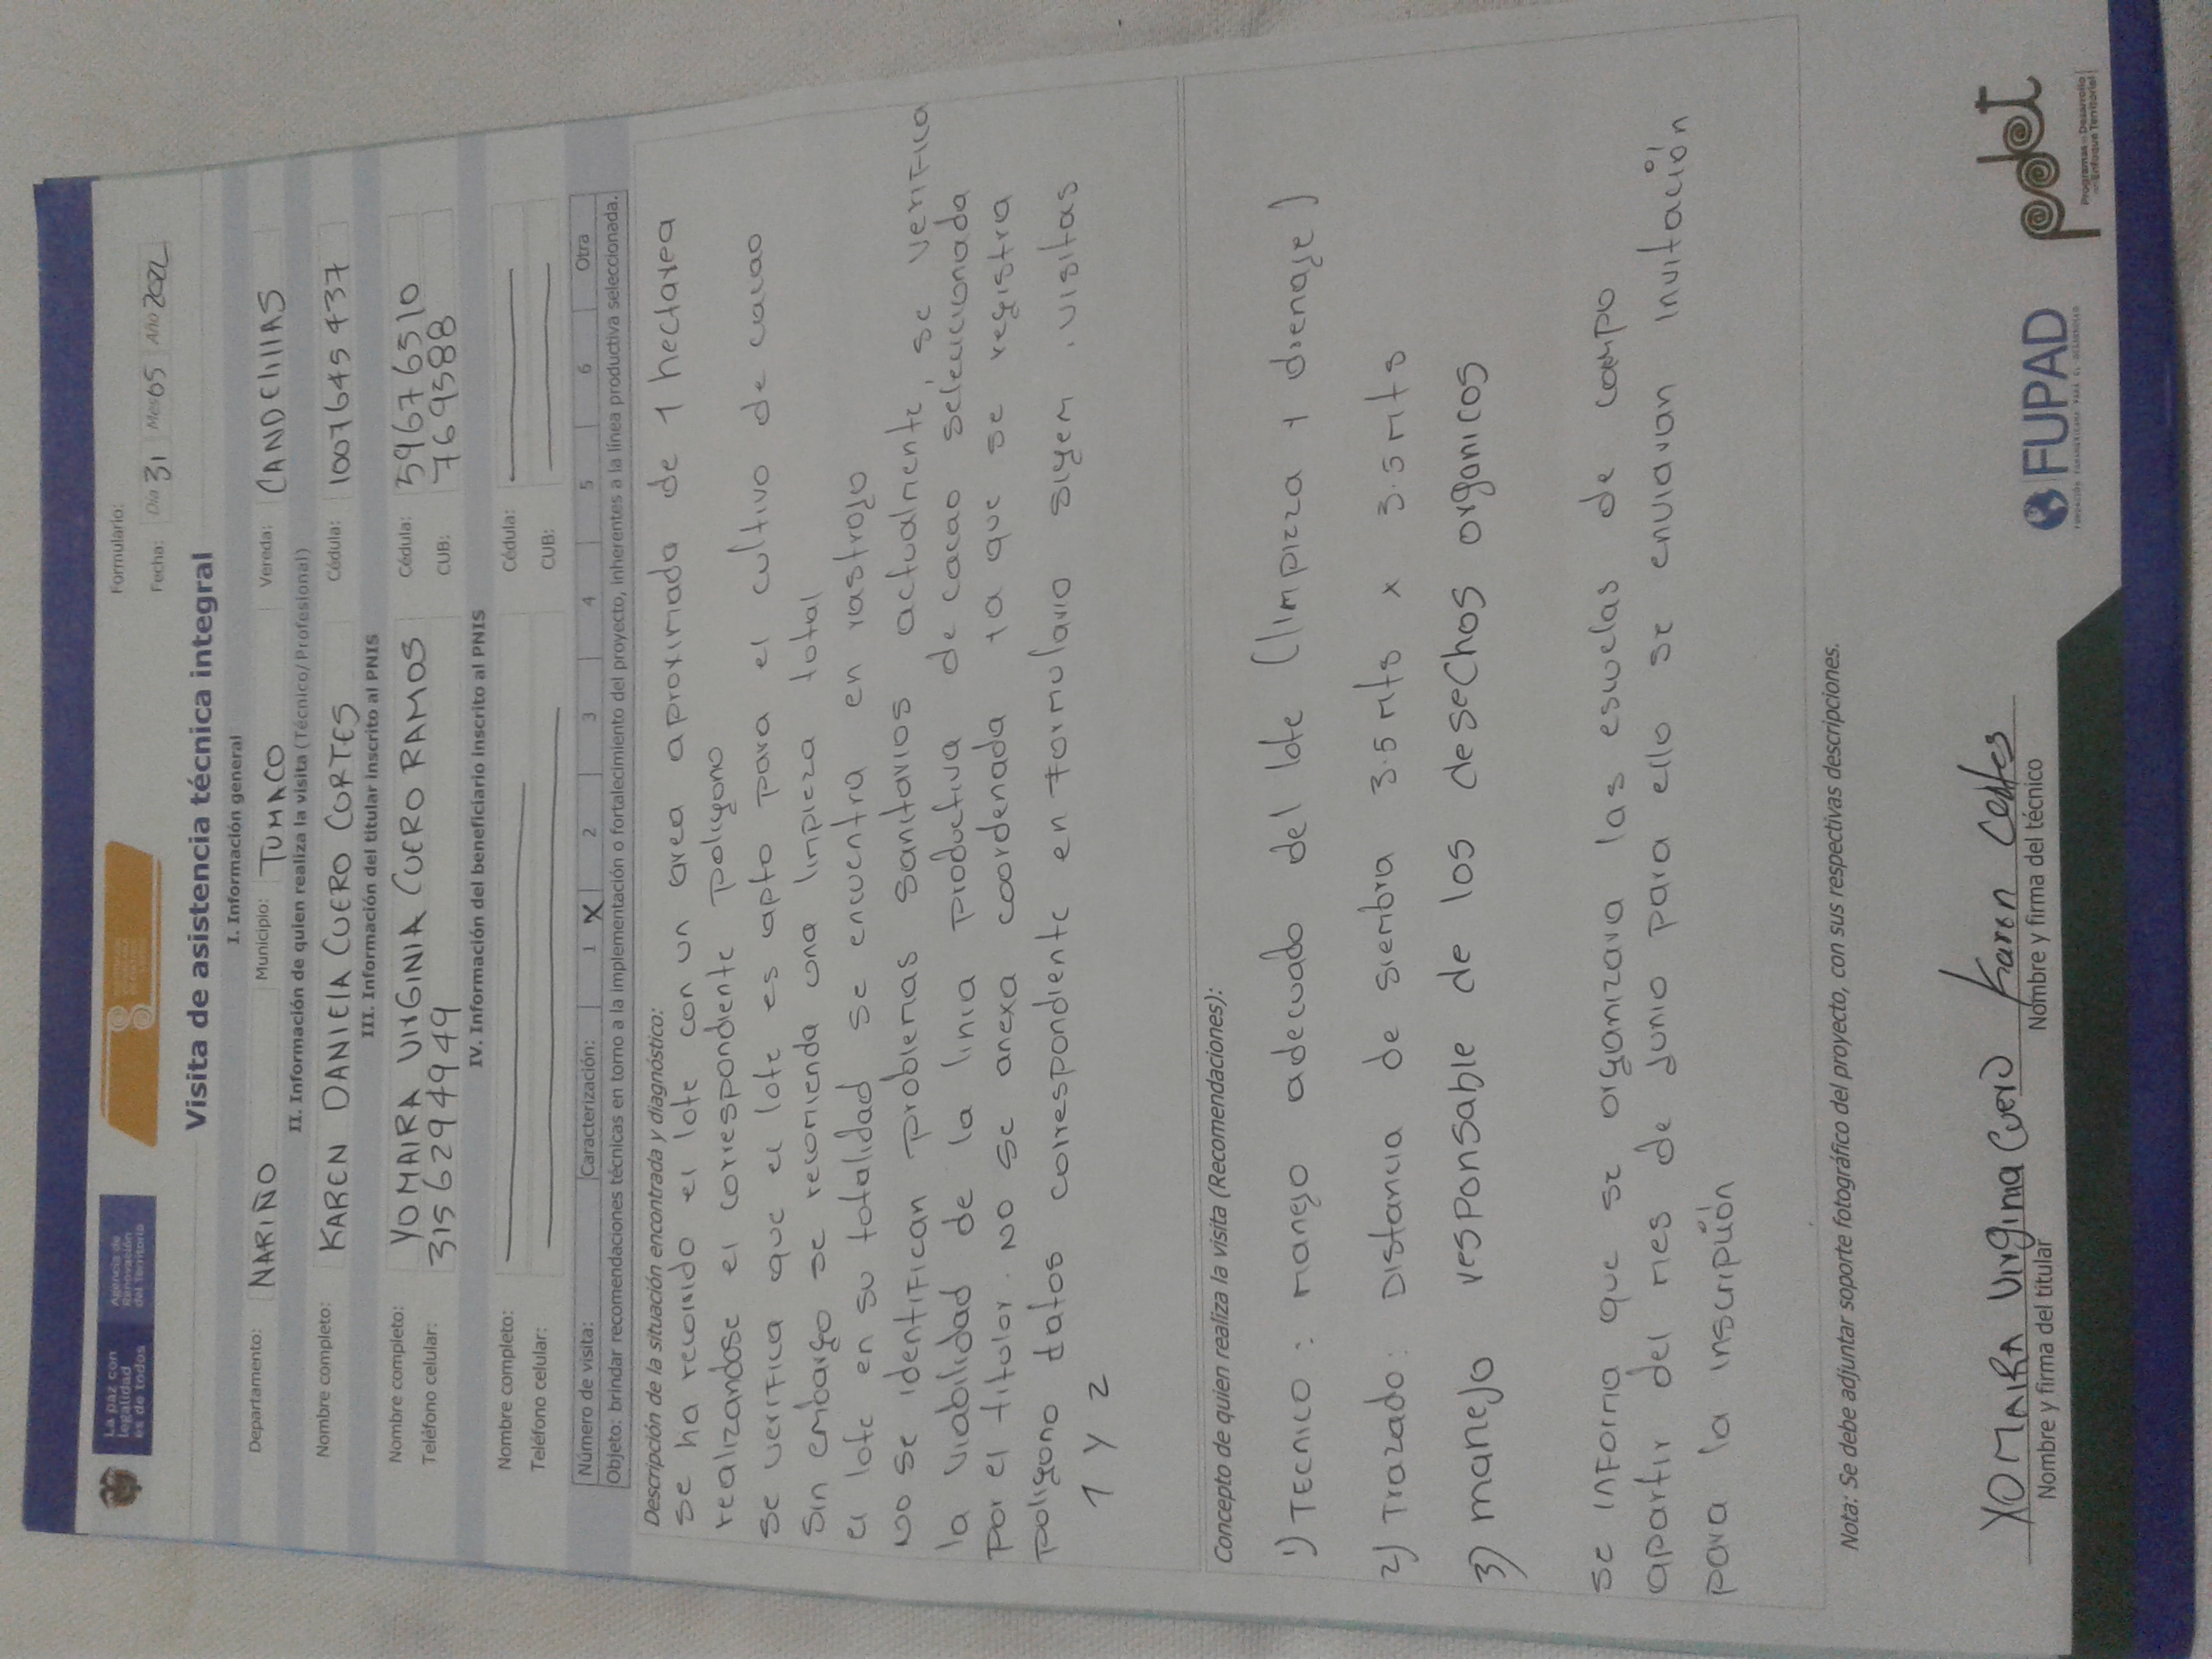 La paz con
legalidad
es de todos
Agencia de
Renovación
del Territorio
Formulario:
Fecha: Día 31 Mes 05 Año 2022
Visita de asistencia técnica integral
I. Información general
Departamento: NARIÑO Municipio: TUMACO Vereda: CANDElillAS
II. Información de quien realiza la visita (Técnico/Profesional)
Nombre completo: KAREN DANIElA CUERO CORTES Cédula: 1007645437
III. Información del titular inscrito al PNIS
Nombre completo: YOMAIRA VIRGINIA CUERO RAMOS Cédula: 59676510
Teléfono celular: 3156294949 CUB: 7669588
IV. Información del beneficiario inscrito al PNIS
Nombre completo: Cédula:
Teléfono celular: CUB:
Número de visita: Caracterización: 1 X 2 3 4 5 6 Otra
Objeto: brindar recomendaciones técnicas en torno a la implementación o fortalecimiento del proyecto, inherentes a la línea productiva seleccionada.
Descripción de la situación encontrada y diagnóstico:
se ha recorrido el lote con un area aproximada de 1 hectarea
realizandose el correspondiente poligono
se verifica que el lote es apto para el cultivo de cacao
sin embargo se recomienda una limpieza total
el lote en su totalidad se encuentra en rastrojo
no se identifican problemas sanitarios actualmente, se verifica
la viabilidad de la linia productiva de cacao seleccionada
por el titular. no se anexa coordenada ya que se registra
poligono datos correspondiente en formulario sigem. visitas
1 y 2
Concepto de quien realiza la visita (Recomendaciones):
1) Tecnico: manejo adecuado del lote (limpieza y drenaje)
2) Trazado: Distancia de siembra 3.5 mts x 3.5 mts
3) manejo responsable de los desechos organicos
se informa que se organizara las escuelas de campo
apartir del mes de Junio para ello se enviaran invitación
para la inscripción
Nota: Se debe adjuntar soporte fotográfico del proyecto, con sus respectivas descripciones.
YOMAIRA Virginia Cuero
Nombre y firma del titular
Karen Cortes
Nombre y firma del técnico
FUPAD
FUNDACIÓN PANAMERICANA PARA EL DESARROLLO
pdet
Programas de Desarrollo
con Enfoque Territorial